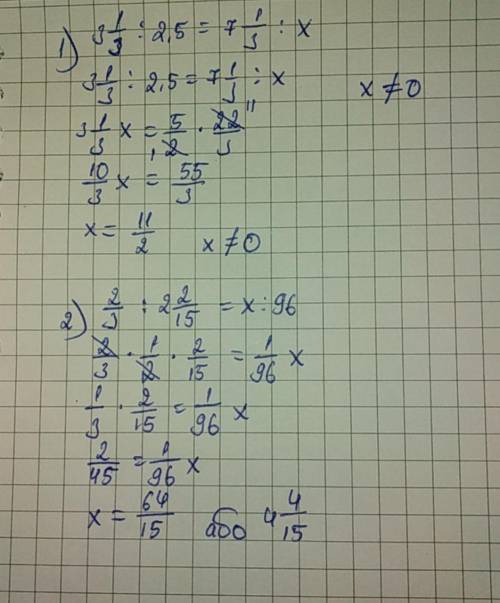 1) 3 1/3 : 2,5 = 7 1/3 : x
3 1/3 : 2,5 = 7 1/3 : x x ≠ 0
3 1/3 x = 5/2 · 22/3 1 11
10/3 x = 55/3
x = 11/2 x ≠ 0
2) 2/3 : 2 2/15 = x : 96
2/3 · 1/2 · 2/15 = 1/96 x
1/3 · 2/15 = 1/96 x
2/45 = 1/96 x
x = 64/15 або 4 4/15